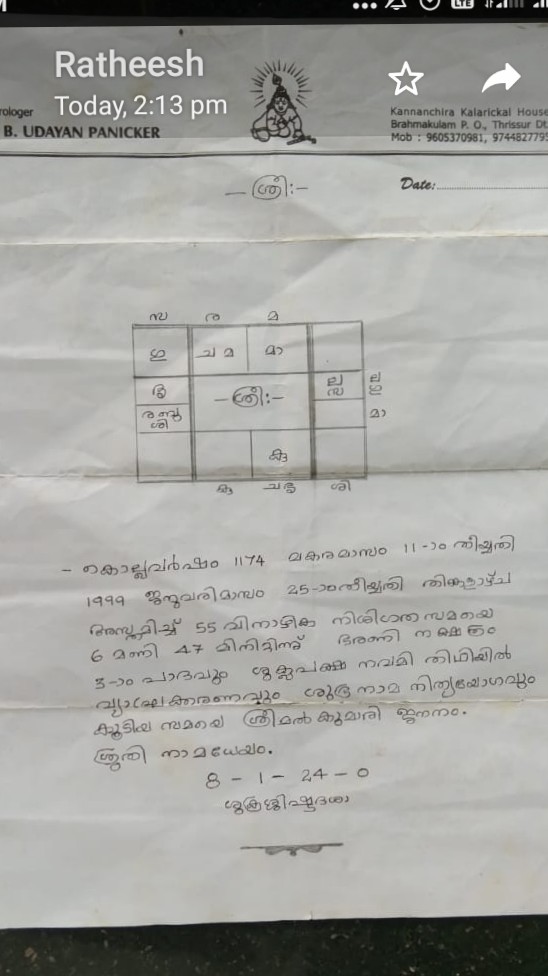 LTE
Ratheesh
Today, 2:13 pm
rologer
B. UDAYAN PANICKER
Kannanchira Kalarickal House
Brahmakulam P. O., Thrissur Dt.
Mob : 9605370981, 9744827795
Date:
– ശ്രീ:–
സ ര മ
ഗു ച മ മാ
– ശ്രീ:–
ല
സ
ല
ഗു
മാ
ശി
കു
ശി
– കൊല്ലവർഷം 1174 മകരമാസം 11-ാം തീയ്യതി
1999 ജനുവരിമാസം 25-ാംതീയ്യതി തിങ്കളാഴ്ച
അസ്തമിച്ച് 55 വിനാഴിക നിശിഗതസമയെ
6 മണി 47 മിനിട്ടിന്ന് ഭരണി നക്ഷത്രം
3-ാം പാദവും ശുക്ലപക്ഷ നവമി തിഥിയിൽ
നാമ നിത്യയോഗവും
കൂടിയ സമയെ ശ്രീമൽ കുമാരി ജനനം.
ശ്രുതി നാമധേയം.
8 – 1 – 24 – 0
ശുക്രശിഷ്ടദശാ